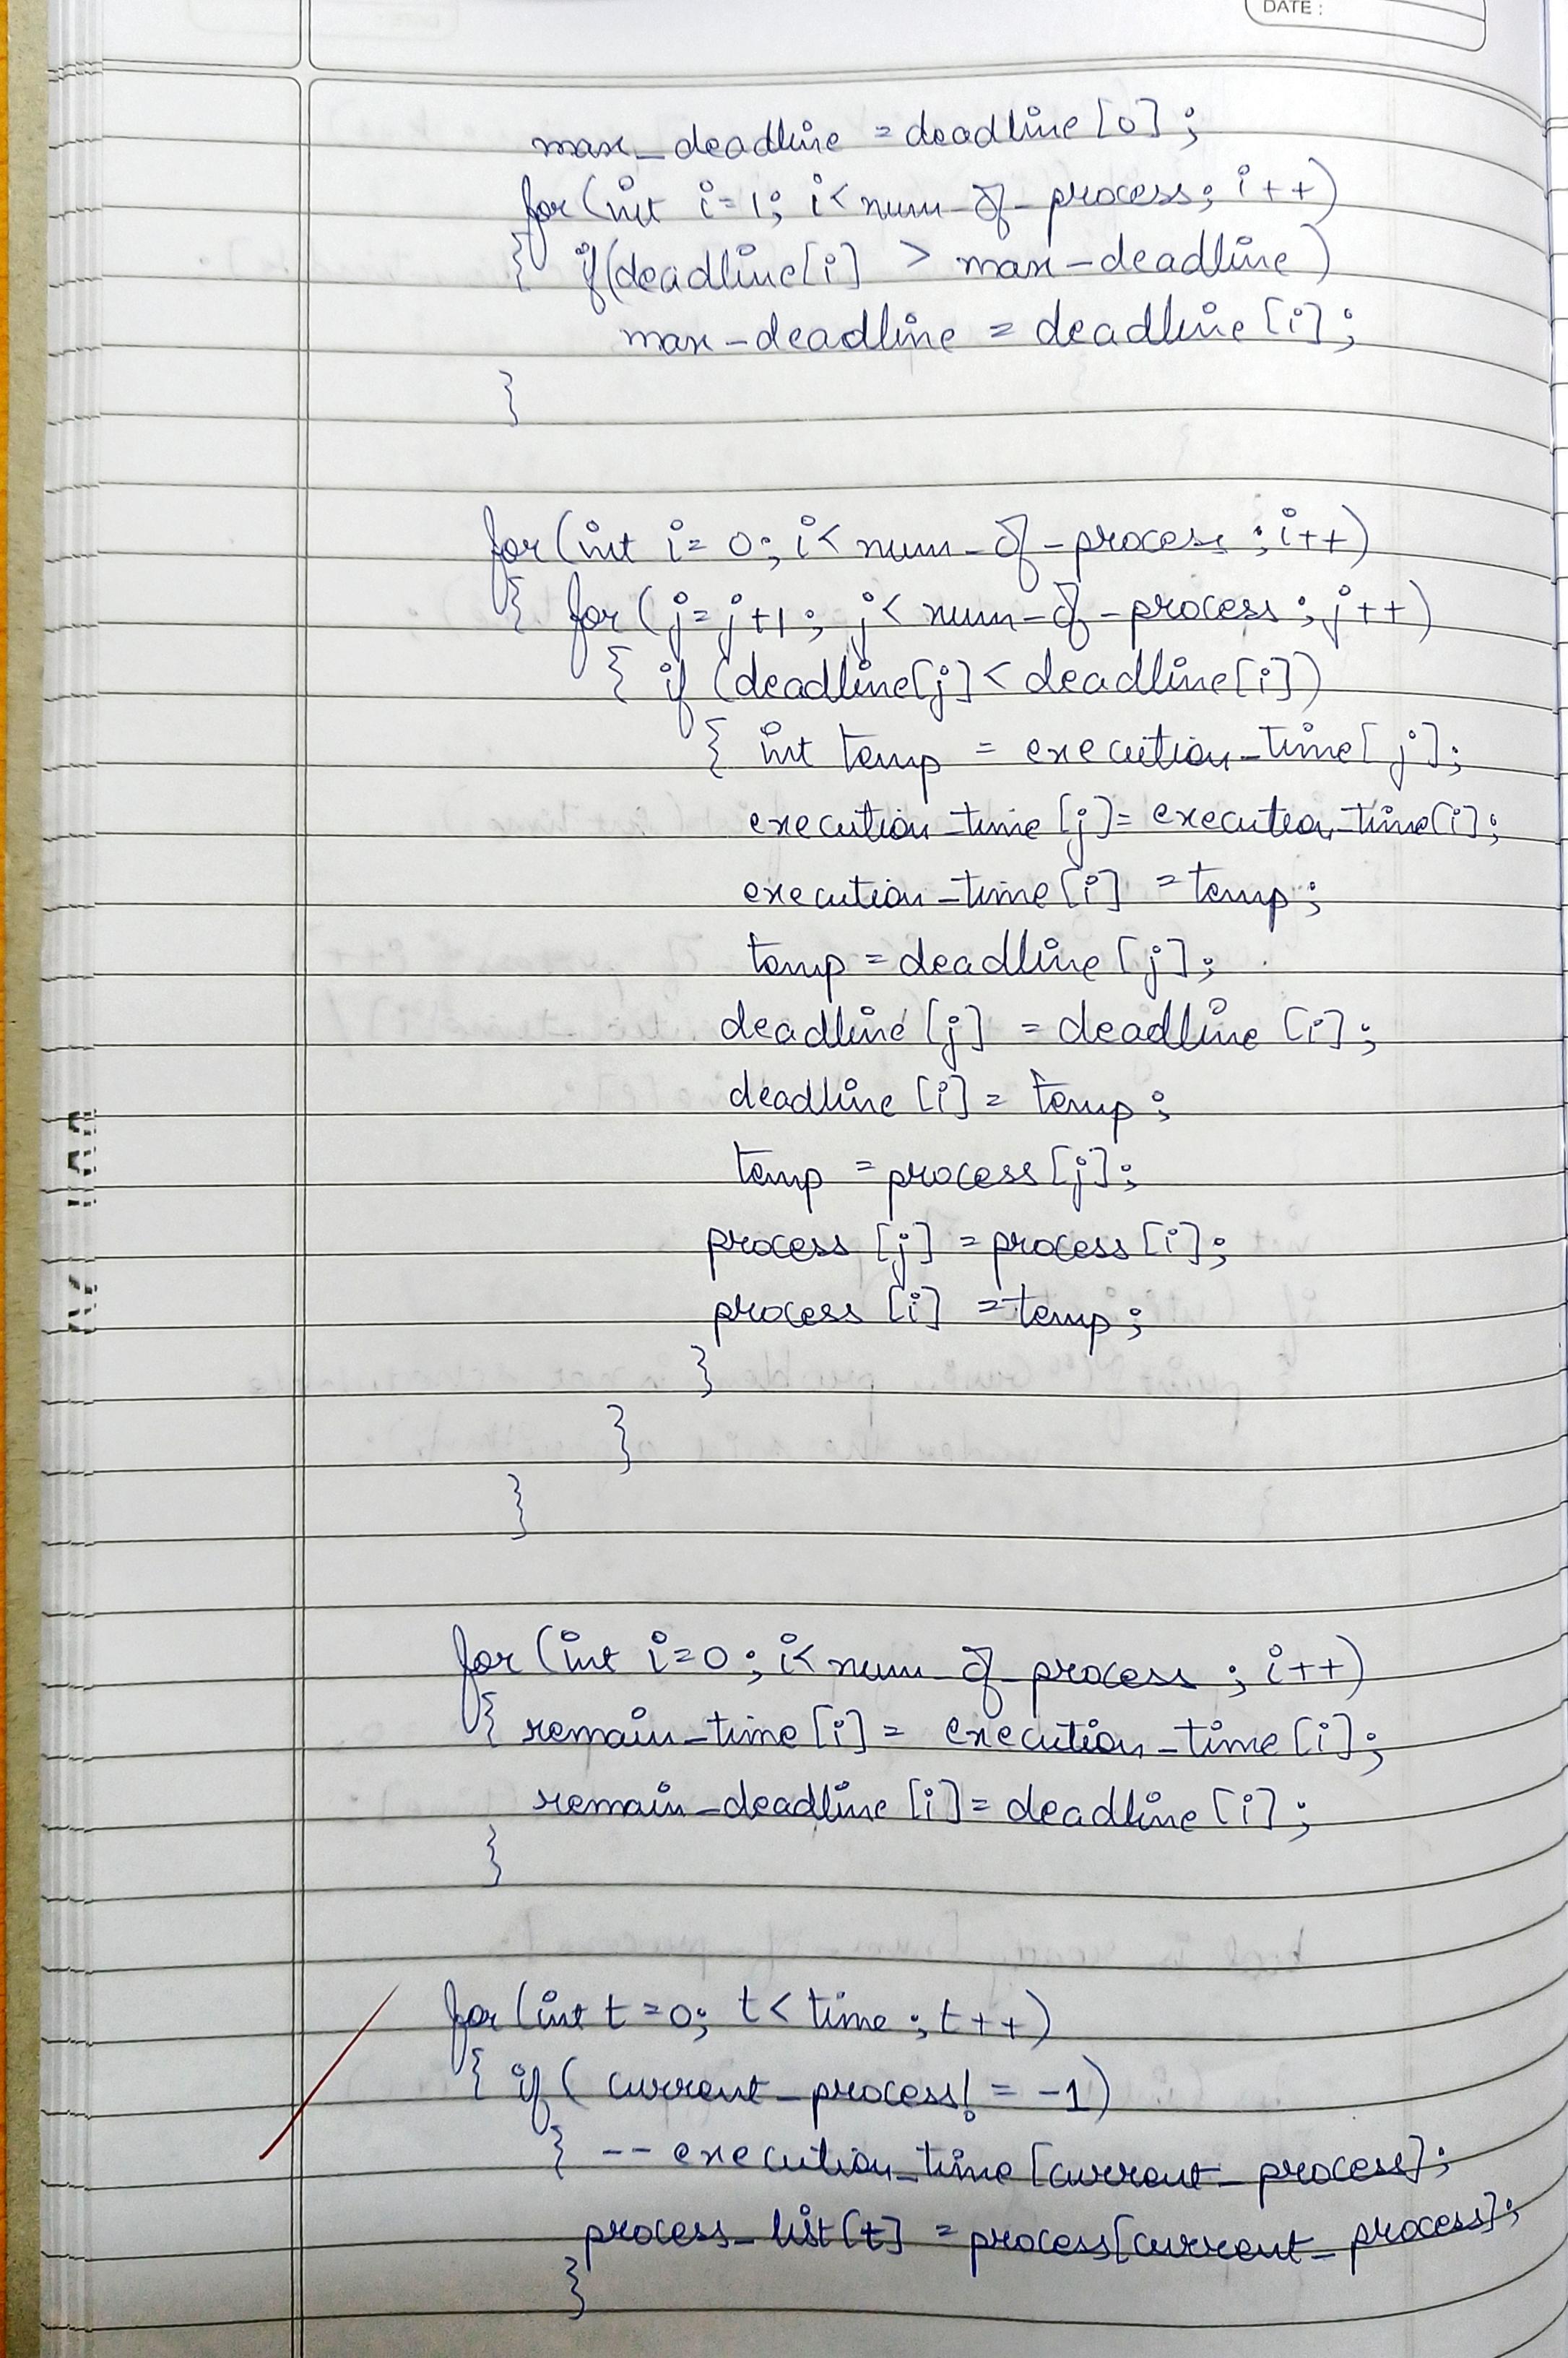 DATE :
max_deadline = deadline[0];
for(int i=1; i<num_of_process; i++)
{ if(deadline[i] > max-deadline)
max-deadline = deadline[i];
}
for(int i=0; i<num_of-process; i++)
{ for(j=j+1; j<num-of-process; j++)
{ if (deadline[j]<deadline[i])
{ int temp = execution_time[j];
execution_time[j]= execution_time[i];
execution_time[i] =temp;
temp=deadline[j];
deadline[j] = deadline[i];
deadline[i]= temp;
temp =process[j];
process[j] =process[i];
process[i] =temp;
}
}
}
for(int i=0; i<num_of_process; i++)
{ remain_time[i]= execution_time[i];
remain_deadline[i]=deadline[i];
}
for(int t=0; t<time; t++)
{ if(current_process!= -1)
{ --execution_time[current_process];
process_list[t] =process[current_process];
}